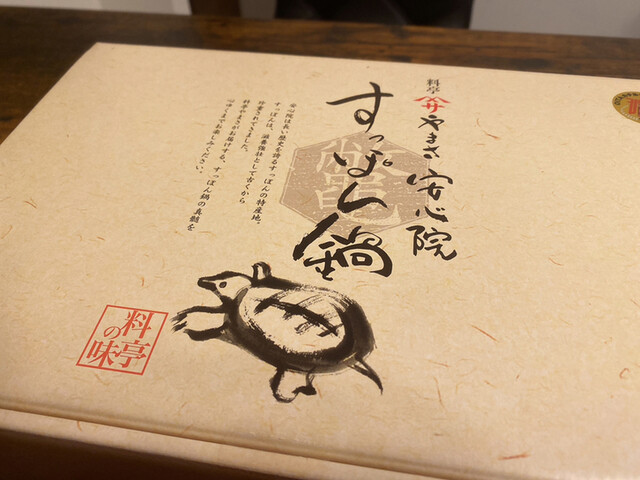 料亭
やまさ
安心院
すっぽん鍋
安心院は長い歴史を誇るすっぽんの特産地。
すっぽんは、滋養強壮として古くから
珍重されてきました。
料亭やまさがお届けする、すっぽん鍋の真髄を
心ゆくまでお楽しみください。
料亭
の味